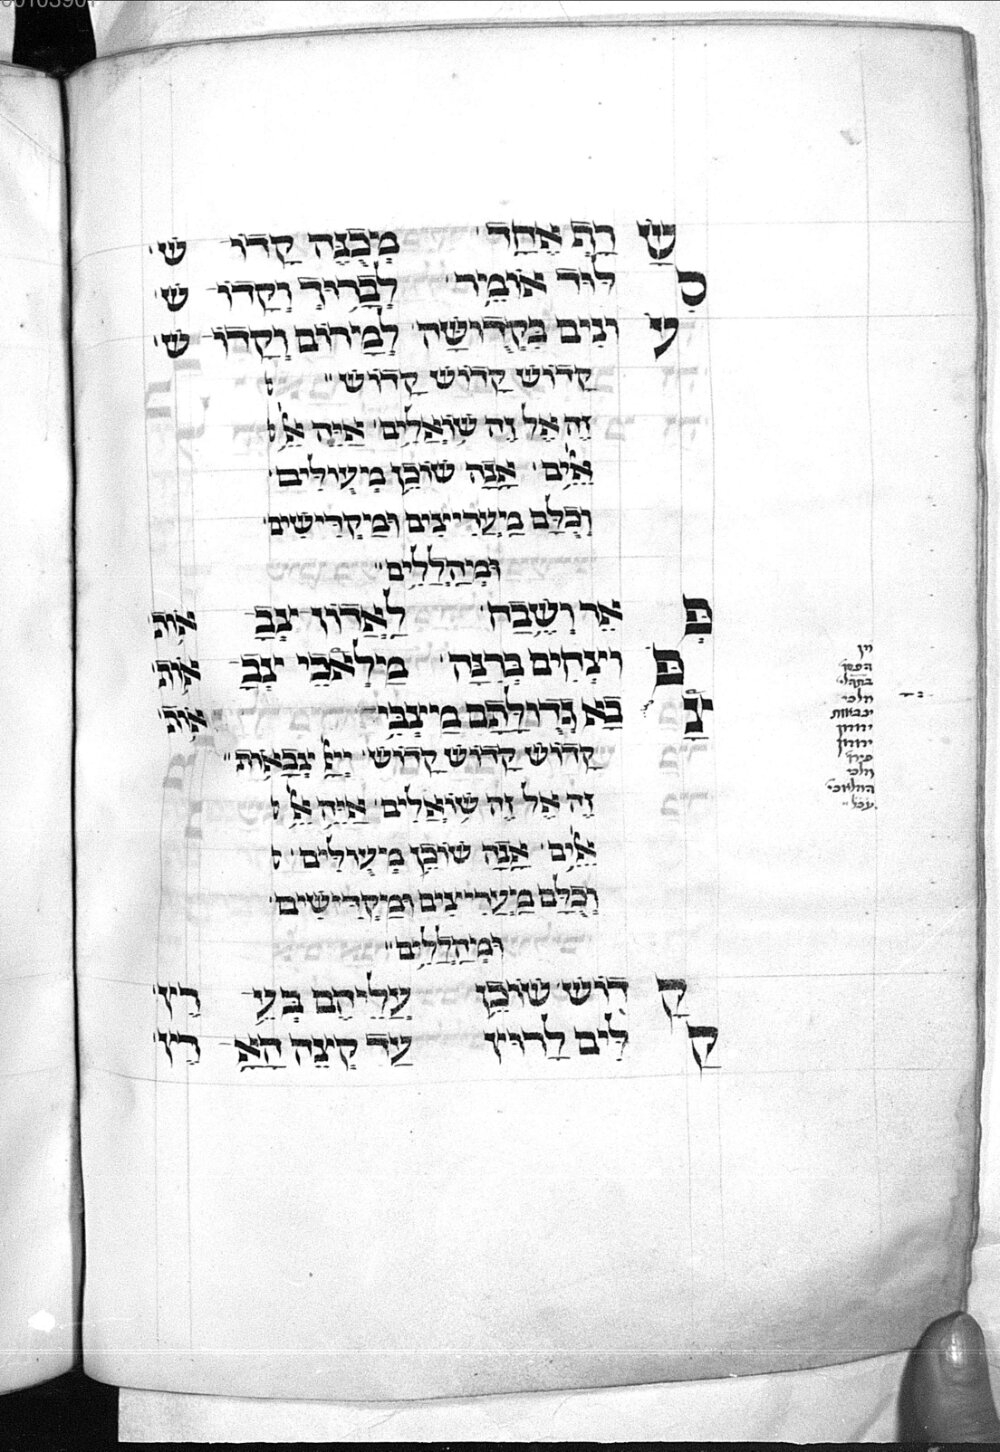 שָׂ רָף אֶחָד מְכֻנֶּה קָדוֹ שׁ
סִ לּוּד אוֹמֵיר לְבָרוּךְ וְקָדוֹ שׁ
עִ וְנִים בִּקְדֻוּשָּׁה לְמֵירוֹם וְקָדוֹ שׁ
קָדוֹשׁ קָדוֹשׁ קָדוֹשׁ
זֶה אֶל זֶה שׁוֹאֲלִים אַיֵּה אֵל
אֵלִים אָנָּה שׁוֹכֵן מְעוּלִּים
וְכֻלָּם מַעֲרִיצִים וּמַקְדִּישִׁים
וּמְהַלְלִים
פְּ אֵר וְשֶׁבַח לַאֲדוֹן צְבָ אוֹת
פּ וֹצְחִים בְּרִנָּה מַלְאֲכֵי צְבָ אוֹת
צִ בְאֹ גְדוּלָּתָם מַצְבִּי אוֹת
קָדוֹשׁ קָדוֹשׁ קָדוֹשׁ ייָ צְבָאוֹת
זֶה אֶל זֶה שׁוֹאֲלִים אַיֵּה אֵל
אֵלִים אָנָּה שׁוֹכֵן מְעוּלִּים
וְכֻלָּם מַעֲרִיצִים וּמַקְדִּישִׁים
וּמְהַלְלִים
קָ דוֹשׁ שׁוֹכֵן עֲלֵיהֶם בְּעֵי רֵץ
קַ לִּים לָרוּץ עַד קְצֵה הָאָ רֶץ
ידודון
ידודון